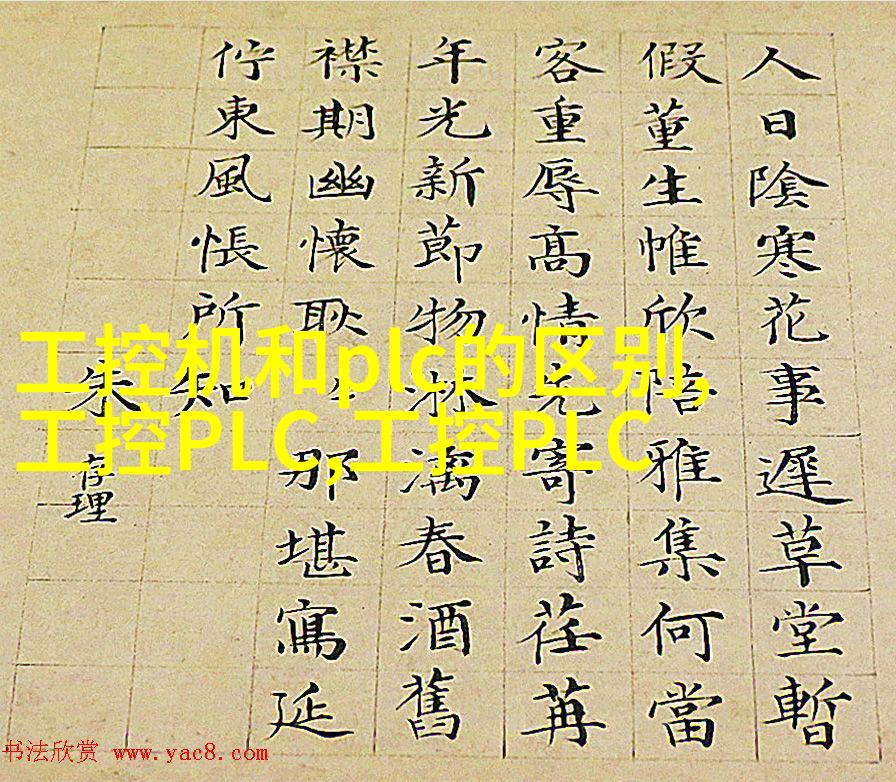 人日陰寒花事遲草堂暫
假董生帷欣陪雅集何當
客重辱高情先寄詩荏苒
年光新節物淋漓春酒舊
襟期幽懷耿々那堪寫延
佇東風悵所知
朱存理
工控机和plc的区别,
工控PLC,工控PLC
书法欣赏 www.yac8.com